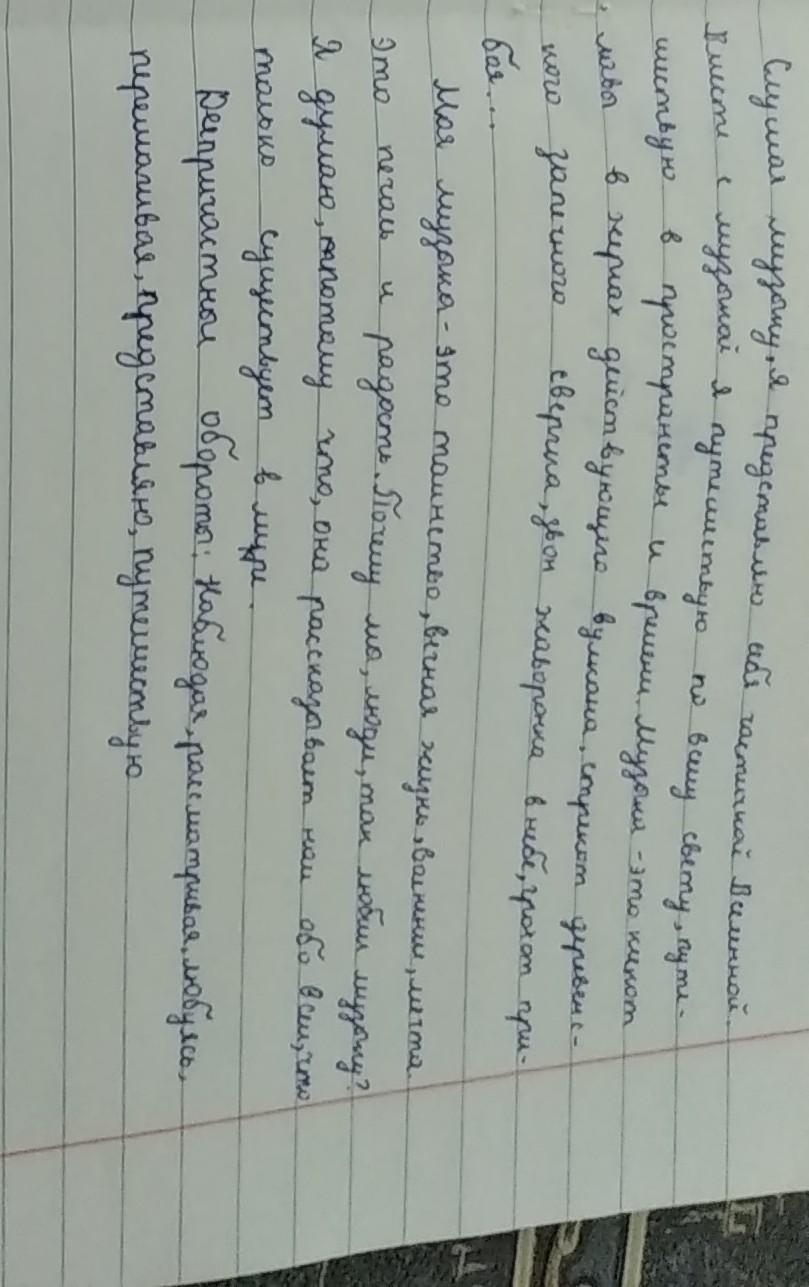 Слушая музыку, я представляю себя частичкой Вселенной.
Вместе с музыкой я путешествую по всему свету, путе-
шествую в пространстве и времени. Музыка - это кипот
лавы в жерлах действующего вулкана, стрекот деревенс-
кого запечного сверчка, звон жаворонка в небе, грохот при-
боя...
Моя музыка - это таинство, вечная жизнь, волнение, мечта.
Это печаль и радость. Почему мы, люди, так любим музыку?
Я думаю, потому что, она рассказывает нам обо всем, что
только существует в мире.
Деепричастные обороты: Наблюдая, рассматривая, любуясь,
перемалывая, представляю, путешествую